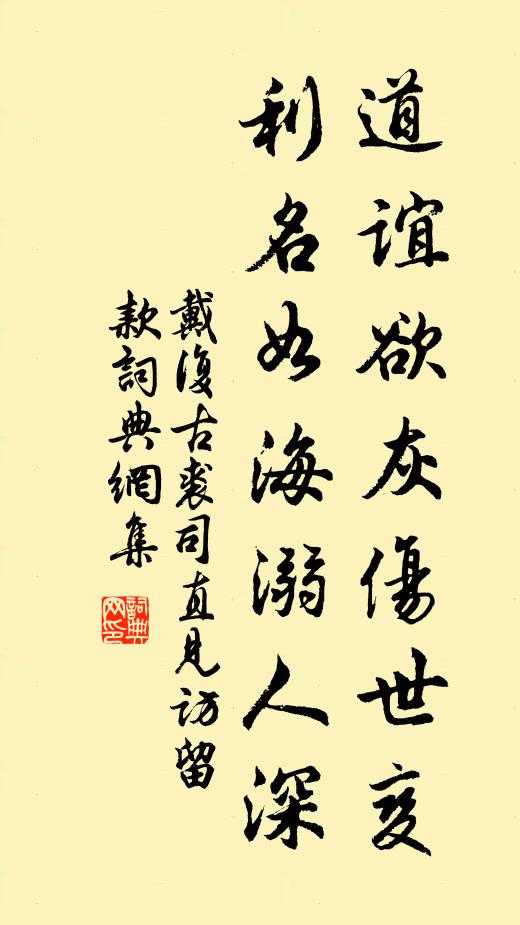 道誼欲灰傷世变
利名如海溺人深
戴復古裘司直見訪留
款詞典網集
詞典
网印